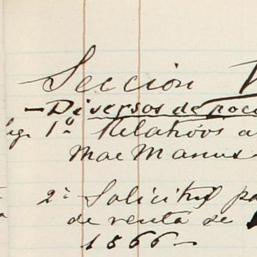 Seccion V
— Diversos de poc
lig. 1º Relativos a
Mac Manus
2º Solicitud pa
de venta de
1866 —